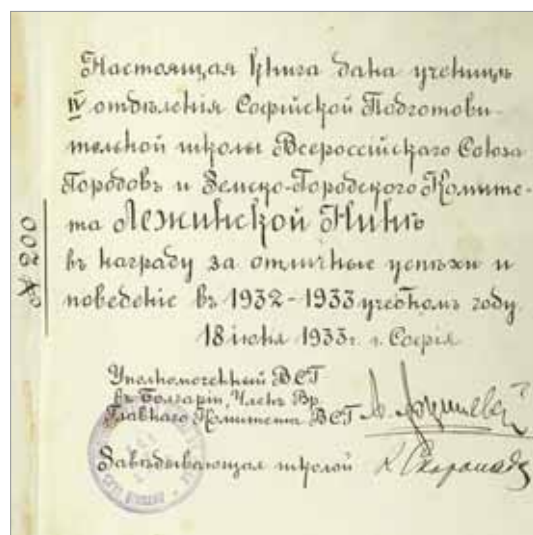 Настоящая книга дана ученицѣ
IV отдѣленія Софійской Подготови-
тельной школы Всероссійскаго Союза
Городовъ и Земско-Городского Комите-
та Лежинской Нинѣ
въ награду за отличные успѣхи и
поведеніе въ 1932-1933 учебномъ году.
18 іюня 1933 г. г. Софія
Уполномоченный ВСГ
въ Болгаріи, Членъ Вр.
Главнаго Комитета ВСГ
Завѣдывающая школой
№ 200